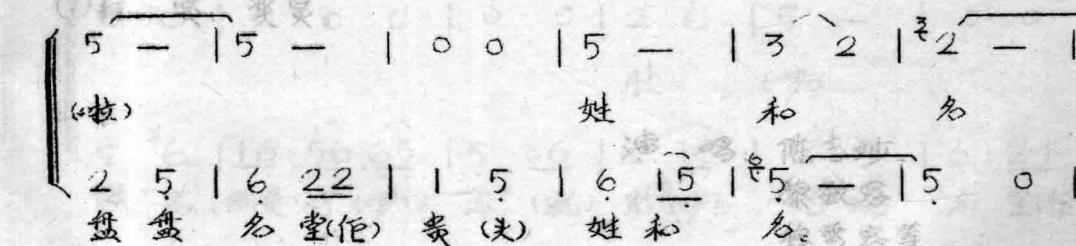 5 — | 5 — | 0 0 | 5 — | 3 2 | 3 2 — |
(啦) 姓 和 名
2 5 | 6 22 | 1 5 | 6 15 | 6 5 — | 5 0 |
盘 盘 名 堂(佢) 贵 (头) 姓 和 名。